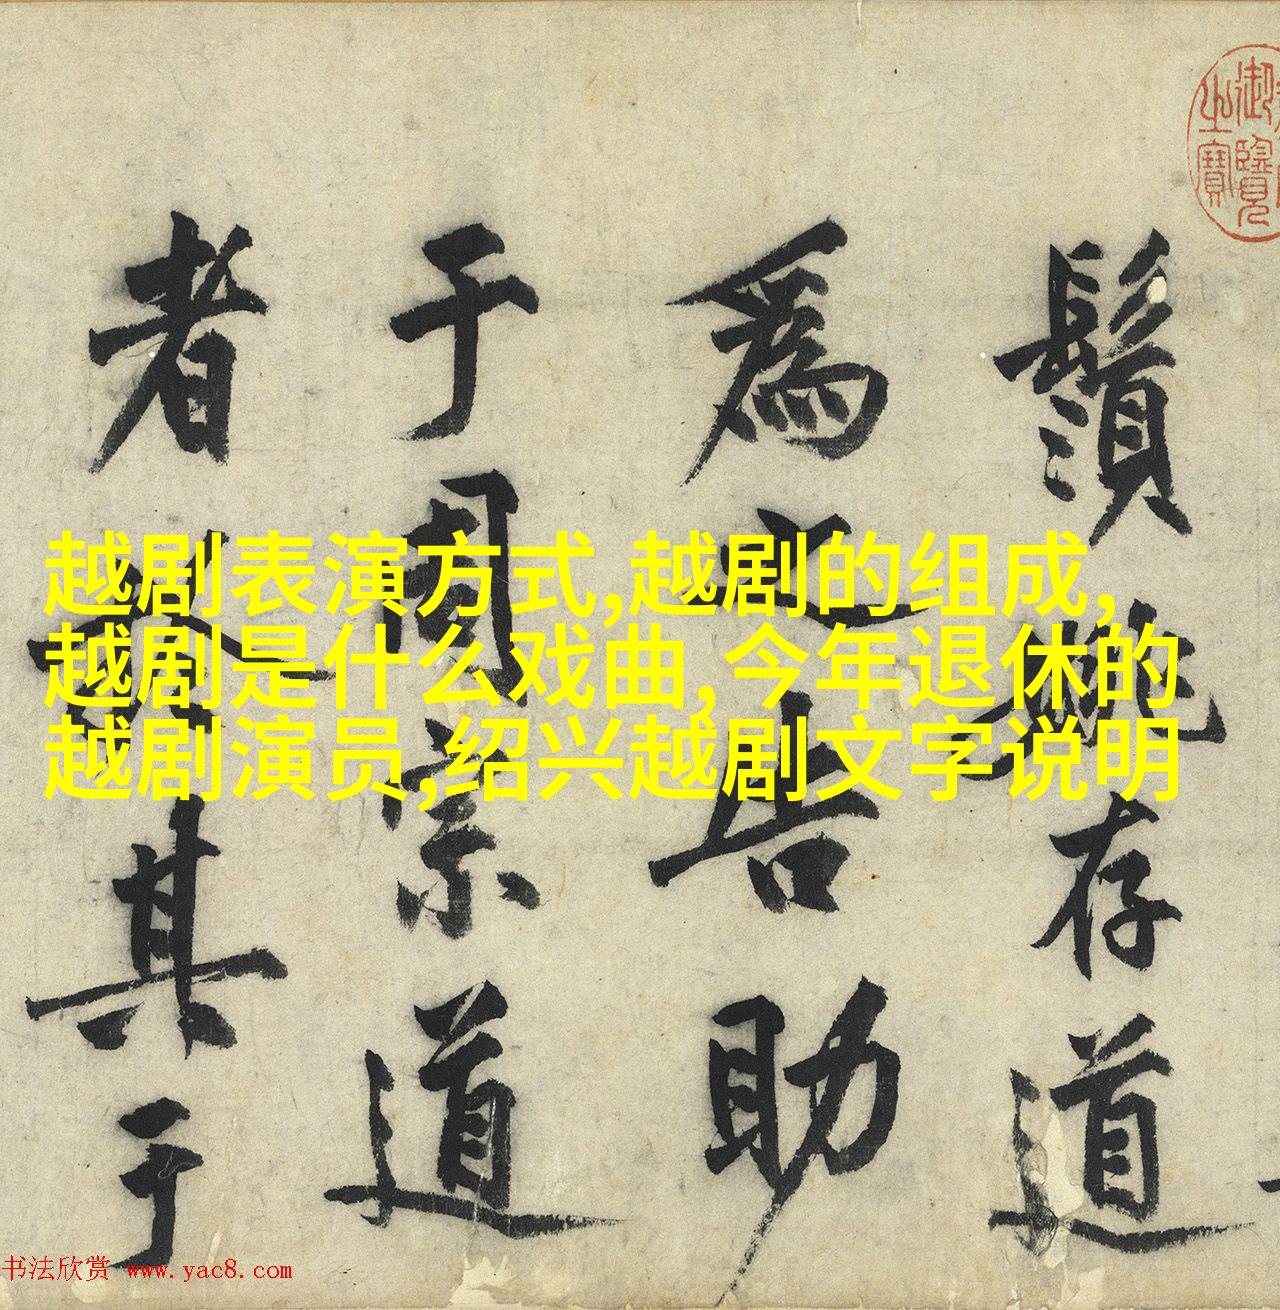 越剧表演方式,越剧的组成,
越剧是什么戏曲,今年退休的
越剧演员,绍兴越剧文字说明
鬚姚存道
為之告助
于周宗道
者其于
御覽
之寶
书法欣赏 www.yac8.com